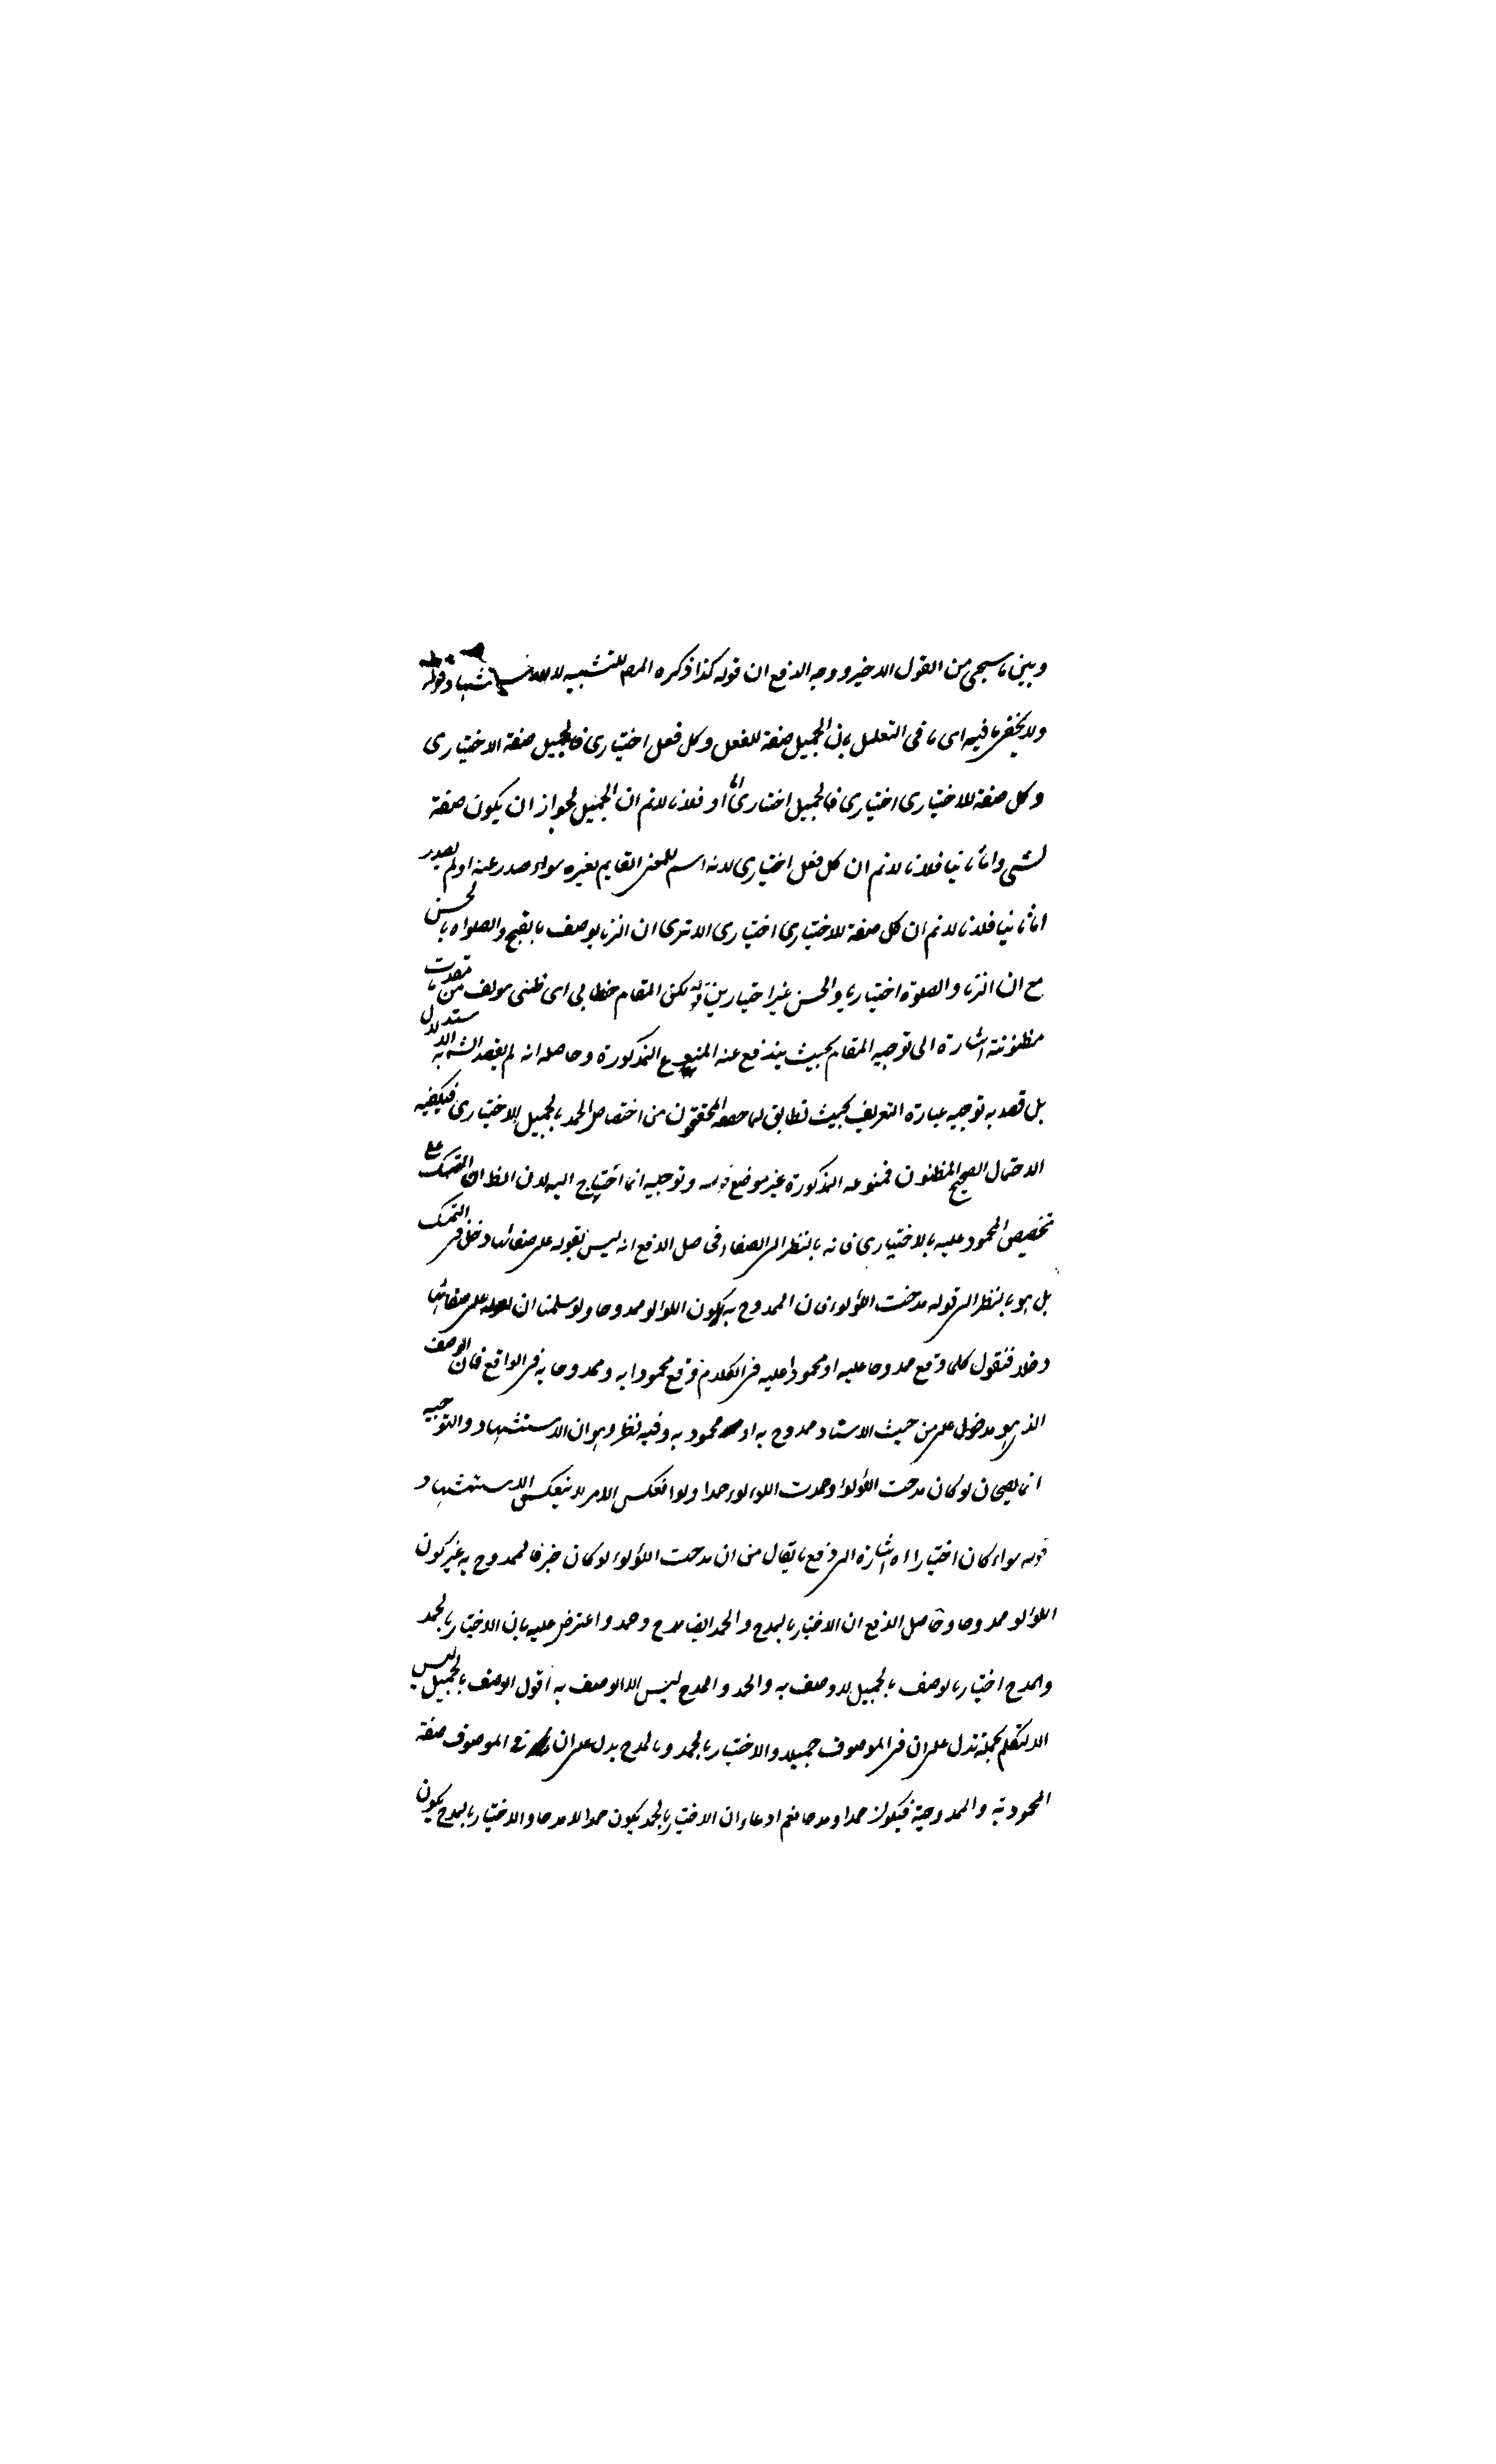 وبين ما سيجى من القول الاخير ووجه الدفع ان قوله كذا ذكره المص للتشبيه لا للاستشهاد قوله
ولا يخفى ما فيه اى ما فى التعليل بان الجميل صفة للفعل وكل فعل اختيارى فالجميل صفة الاختيارى
وكل صفة للاختيارى اختيارى فالجميل اختيارى اما اولا فلانا لا نم ان الجميل لجواز ان يكون صفة
لشى واما ثانيا فلانا لا نم ان كل فعل اختيارى لانه اسم للمعنى القايم بغيره سواء صدر عنه او لم يصدر
اما ثانيا فلانا لا نم ان كل صفة للاختيارى اختيارى الا ترى ان الزنا يوصف بالقبح والصلواة بالحسن
مع ان الزنا والصلوة اختياريا والحسن غير اختياريين قوله لكن المقام خطابى اى ظنى مولف من مقدمات
مظنونة اشارة الى توجيه المقام بحيث يندفع عنه المنوع المذكورة وحاصله انه لم يقصد الش به الاستدلال
بل قصد به توجيه عبارة التعريف بحيث تطابق لما حققه المحققون من اختصاص الحمد بالجميل الاختيارى فيكفيه
الاحتمال الصحيح المظنون فمنوعه المذكورة غير موضع قوله وتوجيه انما احتيج اليه لان الظ ان التمسك على
تخصيص المحمود عليه بالاختيارى فانه بالنظر الى الصفاء وحاصل الدفع انه ليس لقوله على صفائها دخل فى التمسك
بل هو بالنظر الى قوله مدحت اللؤلوء فان الممدوح به يكون اللؤلو ممدوحا ولو سلمنا ان لقوله على صفائها
دخلا فنقول كلما وقع ممدوحا عليه او محمودا عليه فى الكلام وقع محمودا به وممدوحا به فى الواقع فان الوصف
الذى هو مدخول على من حيث الاسناد ممدوح به او محمود به وفيه نظر وهو ان الاستشهاد والتوجيه
انما يصحان لو كان مدحت اللؤلوء وحمدت اللؤلوء حمدا ولو انعكس الامر لا ينعكس الاستشهاد
قوله سواء كان اختيارا اه اشارة الى دفع ما يقال من ان مدحت اللؤلوء لو كان خبرا فالممدوح به غير كون
اللؤلو ممدوحا وحاصل الدفع ان الاخبار بالمدح والحمد ايضا مدح وحمد واعترض عليه بان الاخبار بالحمد
والمدح اخبار بالوصف بالجميل لا وصف به والحمد والمدح ليس الا الوصف به اقول الوصف بالجميل ليس
الا التكلم بجملة تدل على ان فى الموصوف جميلا والاخبار بالحمد وبالمدح يدل على ان فى الموصوف صفة
المحمودية والممدوحية فيكون حمدا ومدحا نعم ادعاء ان الاخبار بالحمد يكون حمدا لا مدحا والاخبار بالمدح يكون